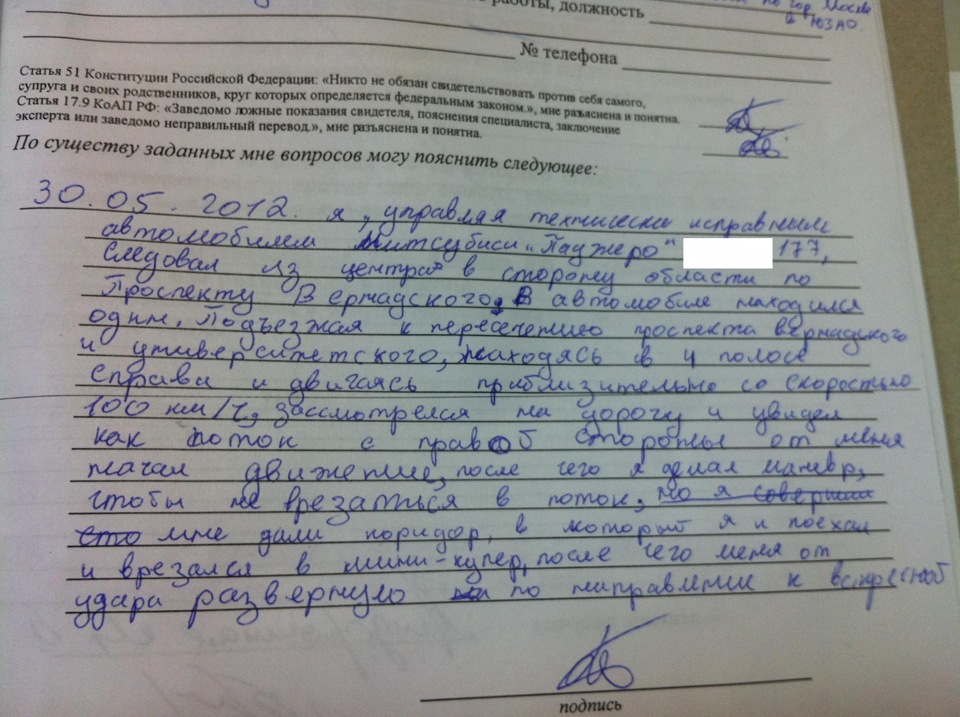 по гор. Москве
работы, должность
и ЮЗАО.
№ телефона
Статья 51 Конституции Российской Федерации: «Никто не обязан свидетельствовать против себя самого,
супруга и своих родственников, круг которых определяется федеральным законом.», мне разъяснена и понятна.
Статья 17.9 КоАП РФ: «Заведомо ложные показания свидетеля, пояснения специалиста, заключение
эксперта или заведомо неправильный перевод.», мне разъяснена и понятна.
По существу заданных мне вопросов могу пояснить следующее:
30.05.2012. я, управляя технически исправным
автомобилем Митсубиси „Паджеро" 177,
следовал из центра в сторону области по
Проспекту Вернадского, В автомобиле находился
один. Подъезжая к пересечению проспекта вернадского
и университетского, находясь в 4 полосе
справа и двигаясь приблизительно со скоростью
100 км/ч, зассмотрелся на дорогу и увидел
как поток с правой стороны от меня
начал движение, после чего я делал маневр,
чтобы не врезаться в поток, но я совершил
что мне дали коридор, в который я и поехал
и врезался в мини-купер, после чего меня от
удара развернуло по направлению к встречной
подпись